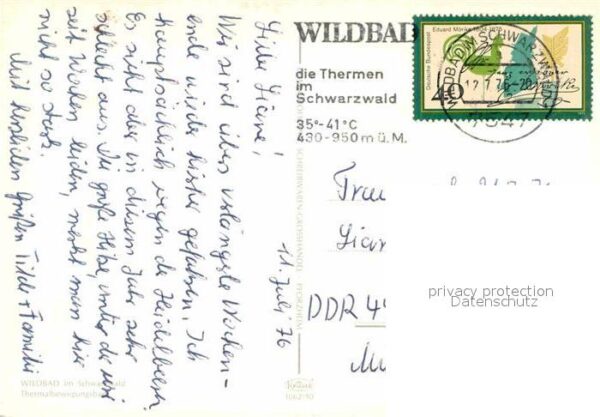 Liebe Liane!
Wir sind übers verlängerte Wochen-
ende wieder hierher gefahren. Ich
hauptsächlich wegen der Heidelbeeren.
Es sieht aber in diesem Jahr sehr
schlecht aus. Die große Hitze, unter der wir
seit Wochen leiden, merkt man hier
nicht so stark.
Mit herzlichen Grüßen
11. Juli 76
WILDBAD im Schwarzwald
Thermalbewegungsbad
WILDBAD
die Thermen
im
Schwarzwald
35°-41°C
430-950 m ü. M.
Eduard Mörike 1804-1875
Deutsche Bundespost
40
WILDBAD IM SCHWARZWALD
7547
Frau
DDR
privacy protection
Datenschutz